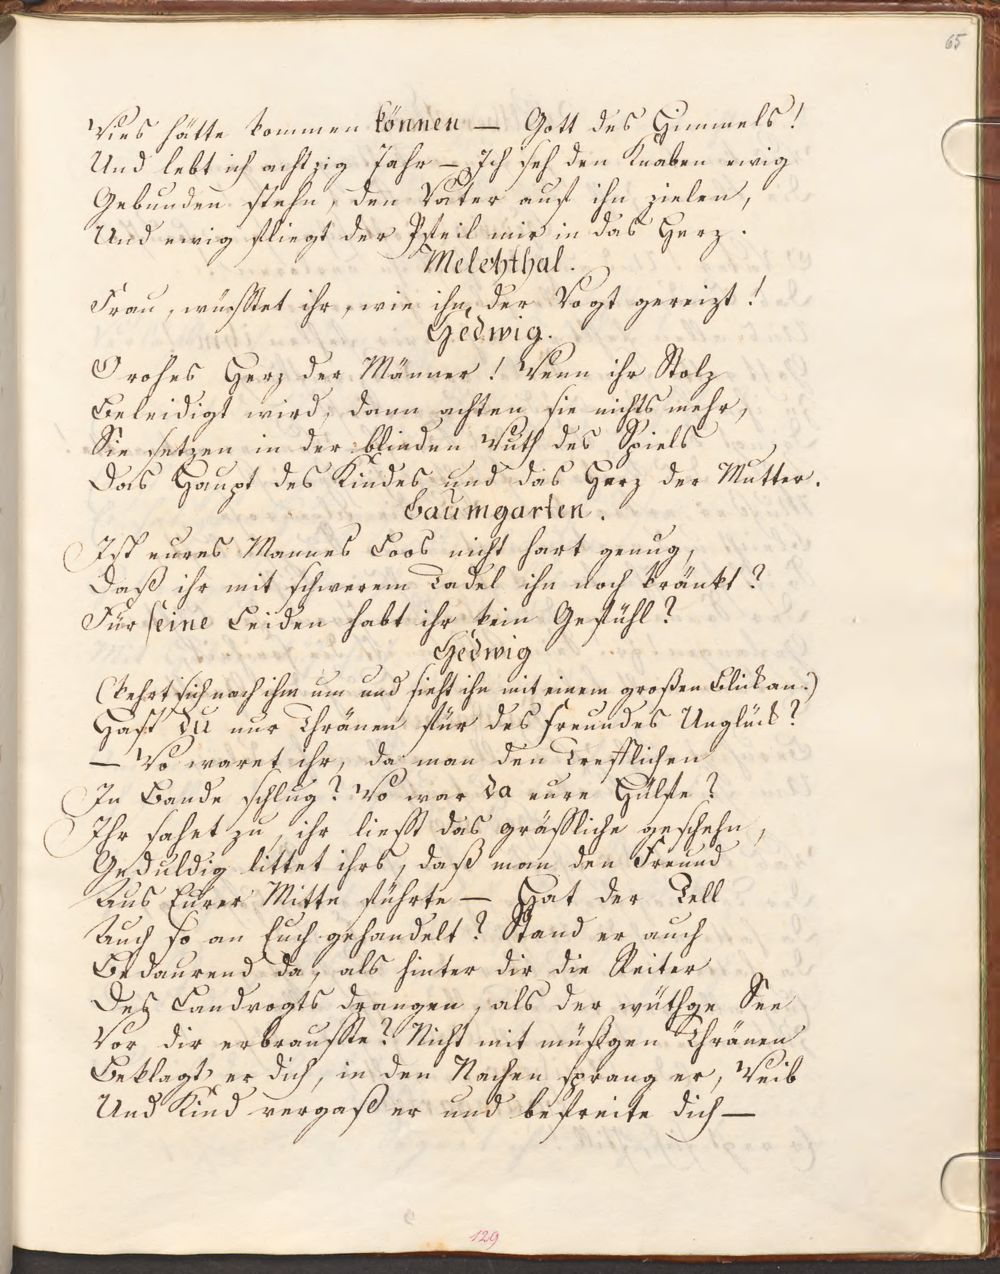 65
Dies hätte kommen können — Gott des Himmels!
Und lebt ich achtzig Jahr — Ich seh den Knaben ewig
Gebunden stehn, den Vater auf ihn zielen,
Und ewig fliegt der Pfeil mir in das Herz.
Melchthal.
Frau, wüsstet ihr, wie ihn der Vogt gereizt!
Hedwig.
O rohes Herz der Männer! Wenn ihr Stolz
Beleidigt wird, dann achten sie nichts mehr,
Sie setzen in der blinden Wuth des Spiels
Das Haupt des Kindes und das Herz der Mutter.
Baumgarten.
Ist eures Mannes Loos nicht hart genug,
Daß ihr mit schwerem Tadel ihn noch kränkt?
Für seine Leiden habt ihr kein Gefühl?
Hedwig
(kehrt sich nach ihm um und sieht ihn mit einem großen Blick an.)
Hast Du nur Thränen für des Freundes Unglück?
— Wo waret ihr, da man den Trefflichen
In Bande schlug? Wo war da eure Hülfe?
Ihr sahet zu, ihr liesst das grässliche geschehn,
Geduldig littet ihrs, daß man den Freund
Aus Eurer Mitte führte — Hat der Tell
Auch so an Euch gehandelt? Stand er auch
Bedaurend da, als hinter dir die Reiter
Des Landvogts drangen, als der wüthge See
Vor dir erbrausste? Nicht mit müßgen Thränen
Beklagt' er dich, in den Nachen sprang er, Weib
Und Kind vergaß er und befreite dich —
129